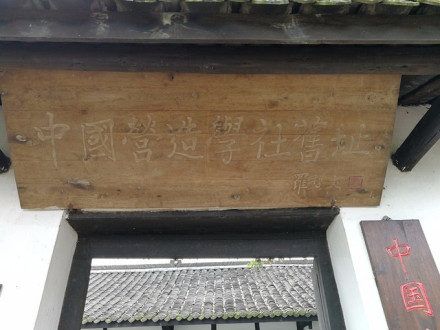 中國營造學社舊址
中国